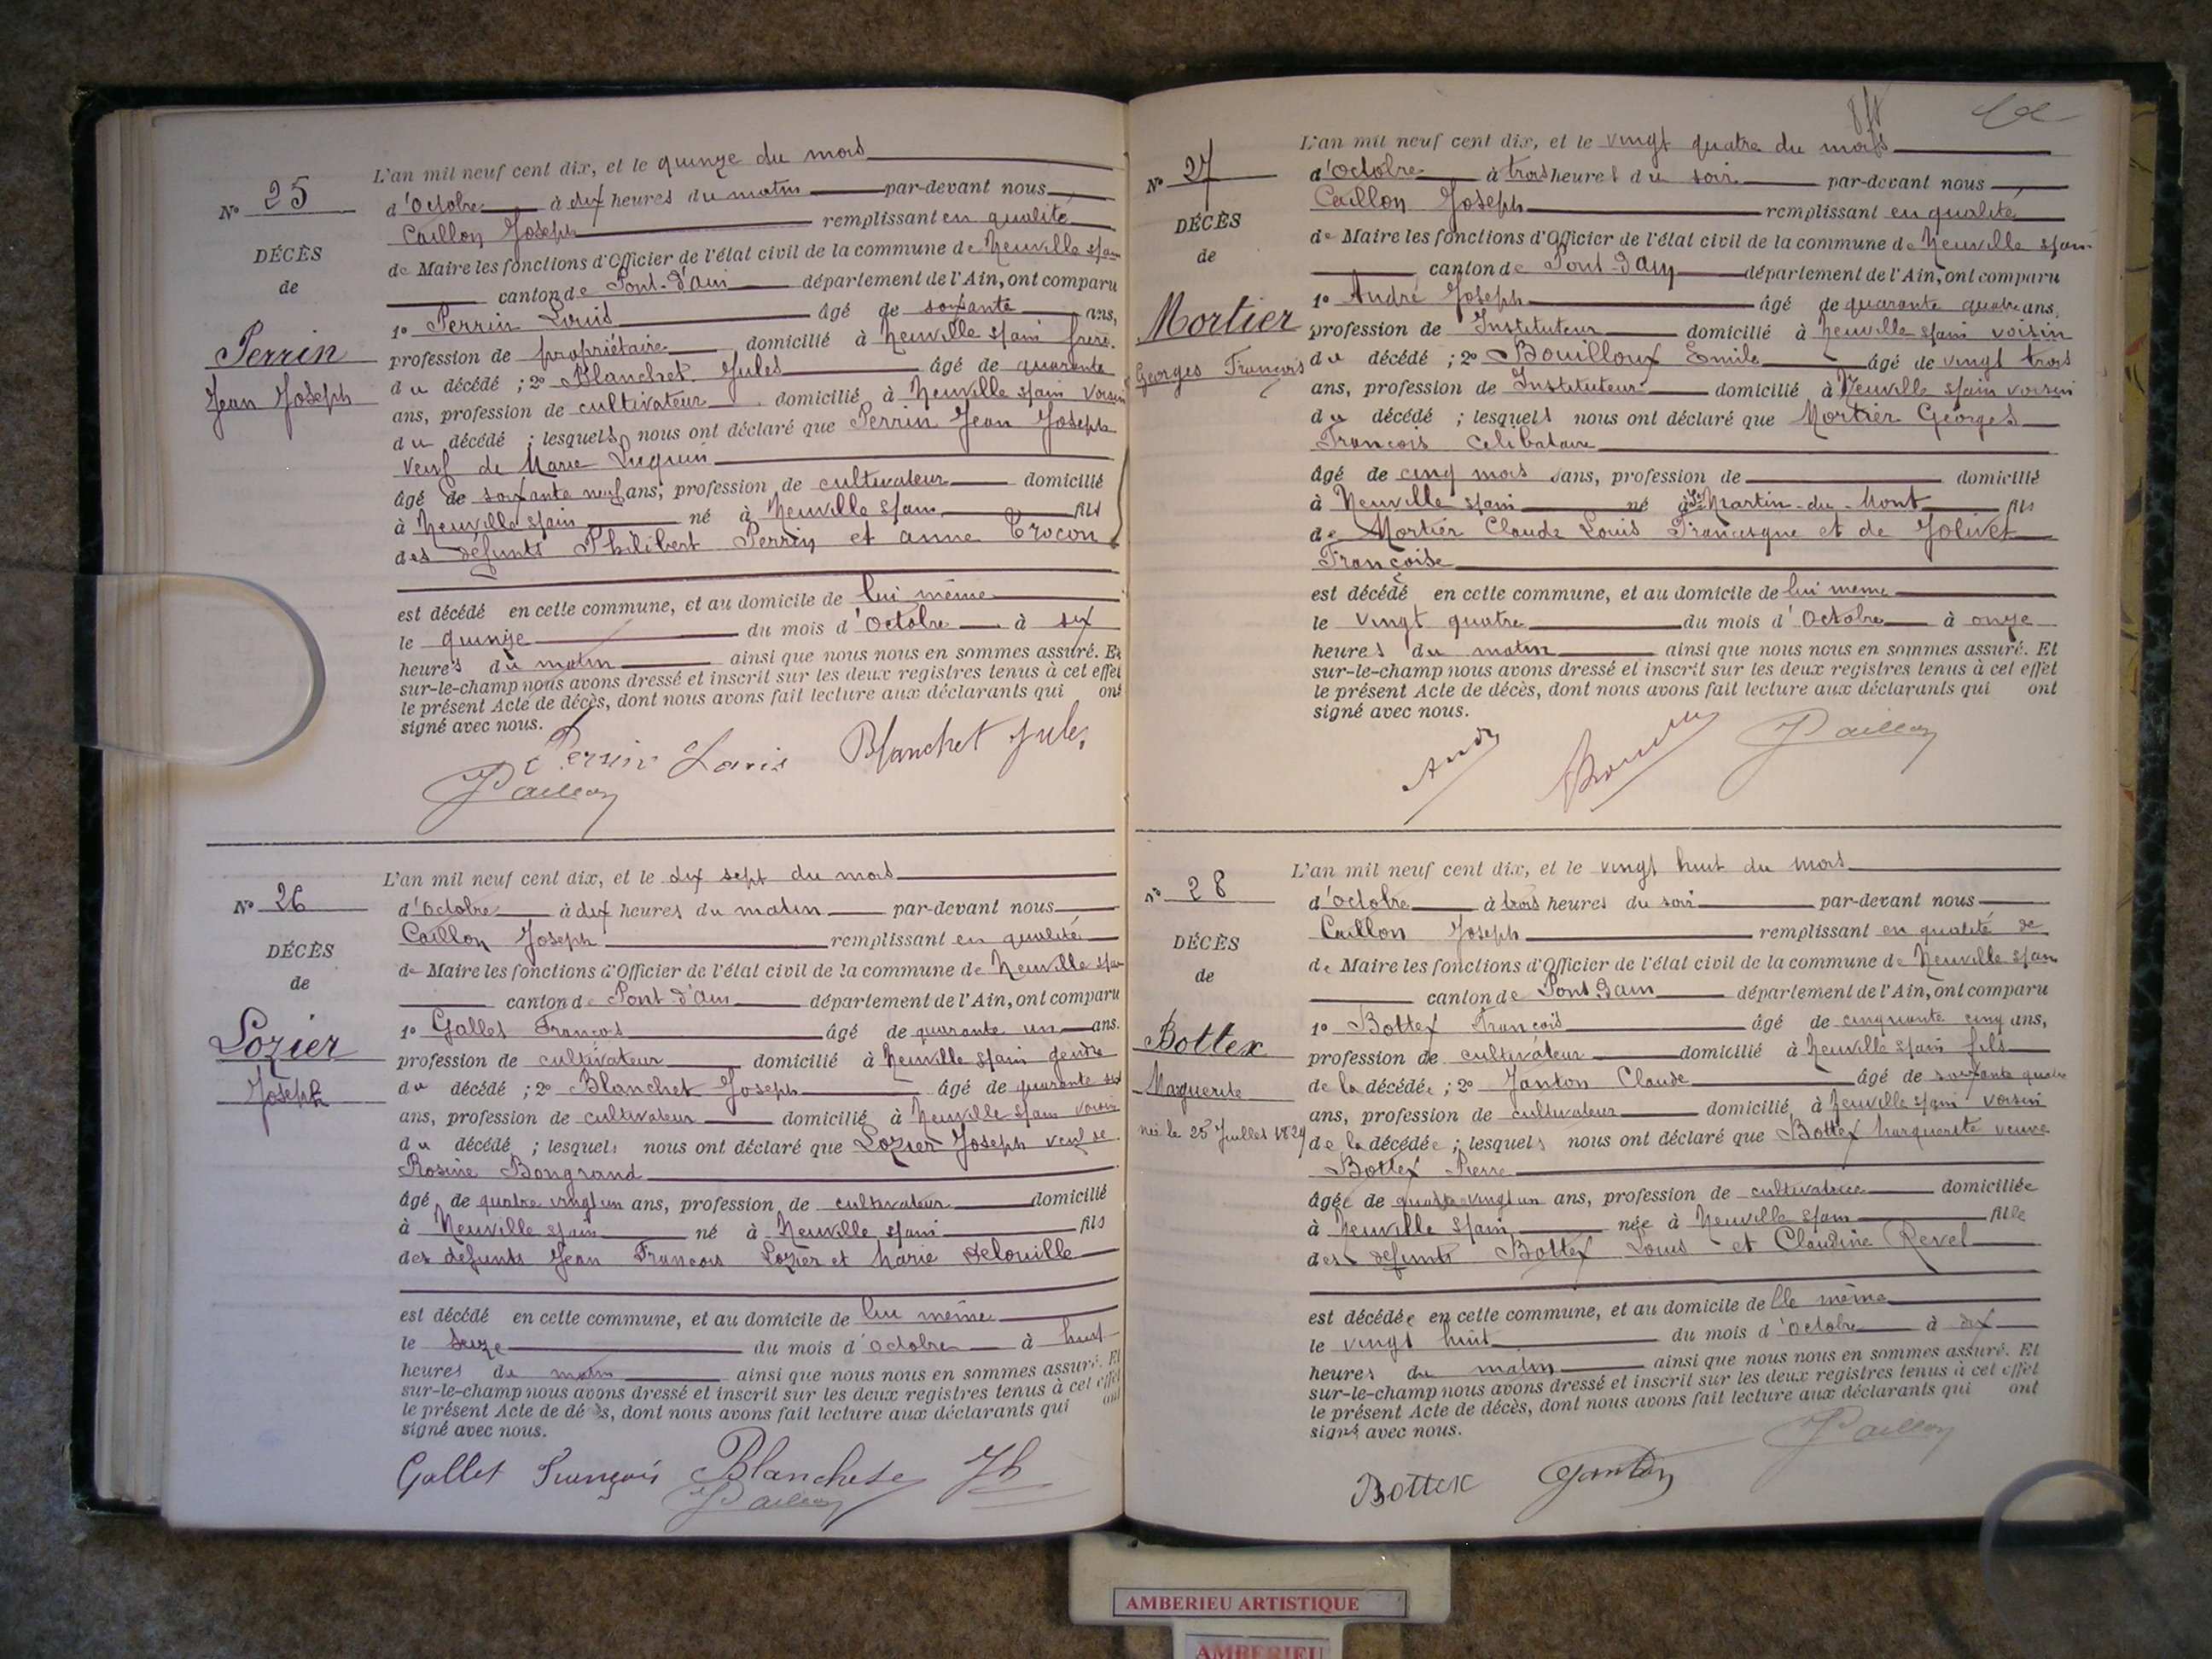 L'an mil neuf cent dix, et le quinze du mois
N° 25
d'Octobre à dix heures du matin par-devant nous
Caillon Joseph remplissant en qualité
DÉCÈS
de Maire les fonctions d'Officier de l'état civil de la commune de Neuville s/ain
de
canton de Pont-d'Ain département de l'Ain, ont comparu
1° Perrin Louis âgé de soixante ans,
Perrin
profession de propriétaire domicilié à Neuville s/ain frère
Jean Joseph
du décédé ; 2° Blanchet Jules âgé de quarante
ans, profession de cultivateur domicilié à Neuville s/ain voisin
du décédé ; lesquels nous ont déclaré que Perrin Jean Joseph
veuf de Marie
âgé de soixante neuf ans, profession de cultivateur domicilié
à Neuville s/ain né à Neuville s/ain fils
des défunts Philibert Perrin et anne Trocon
est décédé en cette commune, et au domicile de lui même
le quinze du mois d'Octobre à six
heures du matin ainsi que nous nous en sommes assuré. Et
sur-le-champ nous avons dressé et inscrit sur les deux registres tenus à cet effet
le présent Acte de décès, dont nous avons fait lecture aux déclarants qui ont
signé avec nous.
Perrin Louis Blanchet Jules
J Caillon
L'an mil neuf cent dix, et le dix sept du mois
N° 26
d'Octobre à dix heures du matin par-devant nous
Caillon Joseph remplissant en qualité
DÉCÈS
de Maire les fonctions d'Officier de l'état civil de la commune de Neuville s/ain
de
canton de Pont-d'Ain département de l'Ain, ont comparu
1° Gallet François âgé de quarante un ans.
Lozier
profession de cultivateur domicilié à Neuville s/ain gendre
Joseph
du décédé ; 2° Blanchet Joseph âgé de quarante six
ans, profession de cultivateur domicilié à Neuville s/ain voisin
du décédé ; lesquels nous ont déclaré que Lozier Joseph veuf de
Rosine Bongrand
âgé de quatre vingt un ans, profession de cultivateur domicilié
à Neuville s/ain né à Neuville s/ain fils
des défunts Jean François Lozier et Marie Delouille
est décédé en cette commune, et au domicile de lui même
le seize du mois d'Octobre à huit
heures du matin ainsi que nous nous en sommes assuré. Et
sur-le-champ nous avons dressé et inscrit sur les deux registres tenus à cet effet
le présent Acte de décès, dont nous avons fait lecture aux déclarants qui ont
signé avec nous.
Gallet François Blanchet Jh
J Caillon
L'an mil neuf cent dix, et le vingt quatre du mois
N° 27
d'Octobre à trois heures du soir par-devant nous
Caillon Joseph remplissant en qualité
DÉCÈS
de Maire les fonctions d'Officier de l'état civil de la commune de Neuville s/ain
de
canton de Pont-d'Ain département de l'Ain, ont comparu
1° André Joseph âgé de quarante quatre ans,
Mortier
profession de Instituteur domicilié à Neuville s/ain voisin
Georges François
du décédé ; 2° Bouilloux Emile âgé de vingt trois
ans, profession de Instituteur domicilié à Neuville s/ain voisin
du décédé ; lesquels nous ont déclaré que Mortier Georges
François Célibataire
âgé de cinq mois ans, profession de domicilié
à Neuville s/ain né à St Martin-du-Mont fils
de Mortier Claude Louis Francisque et de Jolivet
Françoise
est décédé en cette commune, et au domicile de lui même
le vingt quatre du mois d'Octobre à onze
heures du matin ainsi que nous nous en sommes assuré. Et
sur-le-champ nous avons dressé et inscrit sur les deux registres tenus à cet effet
le présent Acte de décès, dont nous avons fait lecture aux déclarants qui ont
signé avec nous.
J Caillon
L'an mil neuf cent dix, et le vingt huit du mois
N° 28
d'Octobre à trois heures du soir par-devant nous
Caillon Joseph remplissant en qualité de
DÉCÈS
de Maire les fonctions d'Officier de l'état civil de la commune de Neuville s/ain
de
canton de Pont d'ain département de l'Ain, ont comparu
1° Bottex François âgé de cinquante cinq ans,
Bottex
profession de cultivateur domicilié à Neuville s/ain fils
Marguerite
de la décédée ; 2° Janton Claude âgé de soixante quatre
ans, profession de cultivateur domicilié à Neuville s/ain voisin
née le 25 Juillet 1829
de la décédée ; lesquels nous ont déclaré que Bottex Marguerite veuve
Bottex Pierre
âgée de quatre vingt un ans, profession de cultivatrice domiciliée
à Neuville s/ain née à Neuville s/ain fille
des défunts Bottex Louis et Claudine Revel
est décédée en cette commune, et au domicile de lle même
le vingt huit du mois d'Octobre à dix
heures du matin ainsi que nous nous en sommes assuré. Et
sur-le-champ nous avons dressé et inscrit sur les deux registres tenus à cet effet
le présent Acte de décès, dont nous avons fait lecture aux déclarants qui ont
signé avec nous.
J Caillon
Bottex Janton
AMBERIEU ARTISTIQUE
AMBERIEU